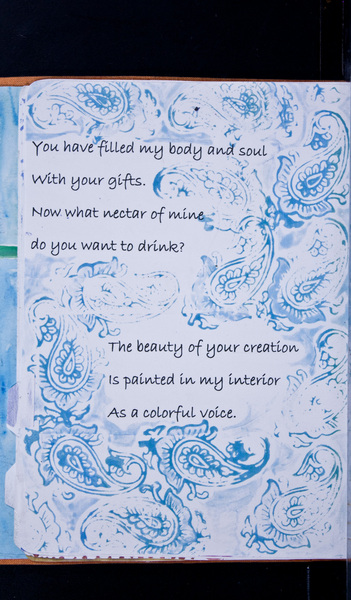 You have filled my body and soul
With your gifts.
Now what nectar of mine
do you want to drink?
The beauty of your creation
Is painted in my interior
As a colorful voice.